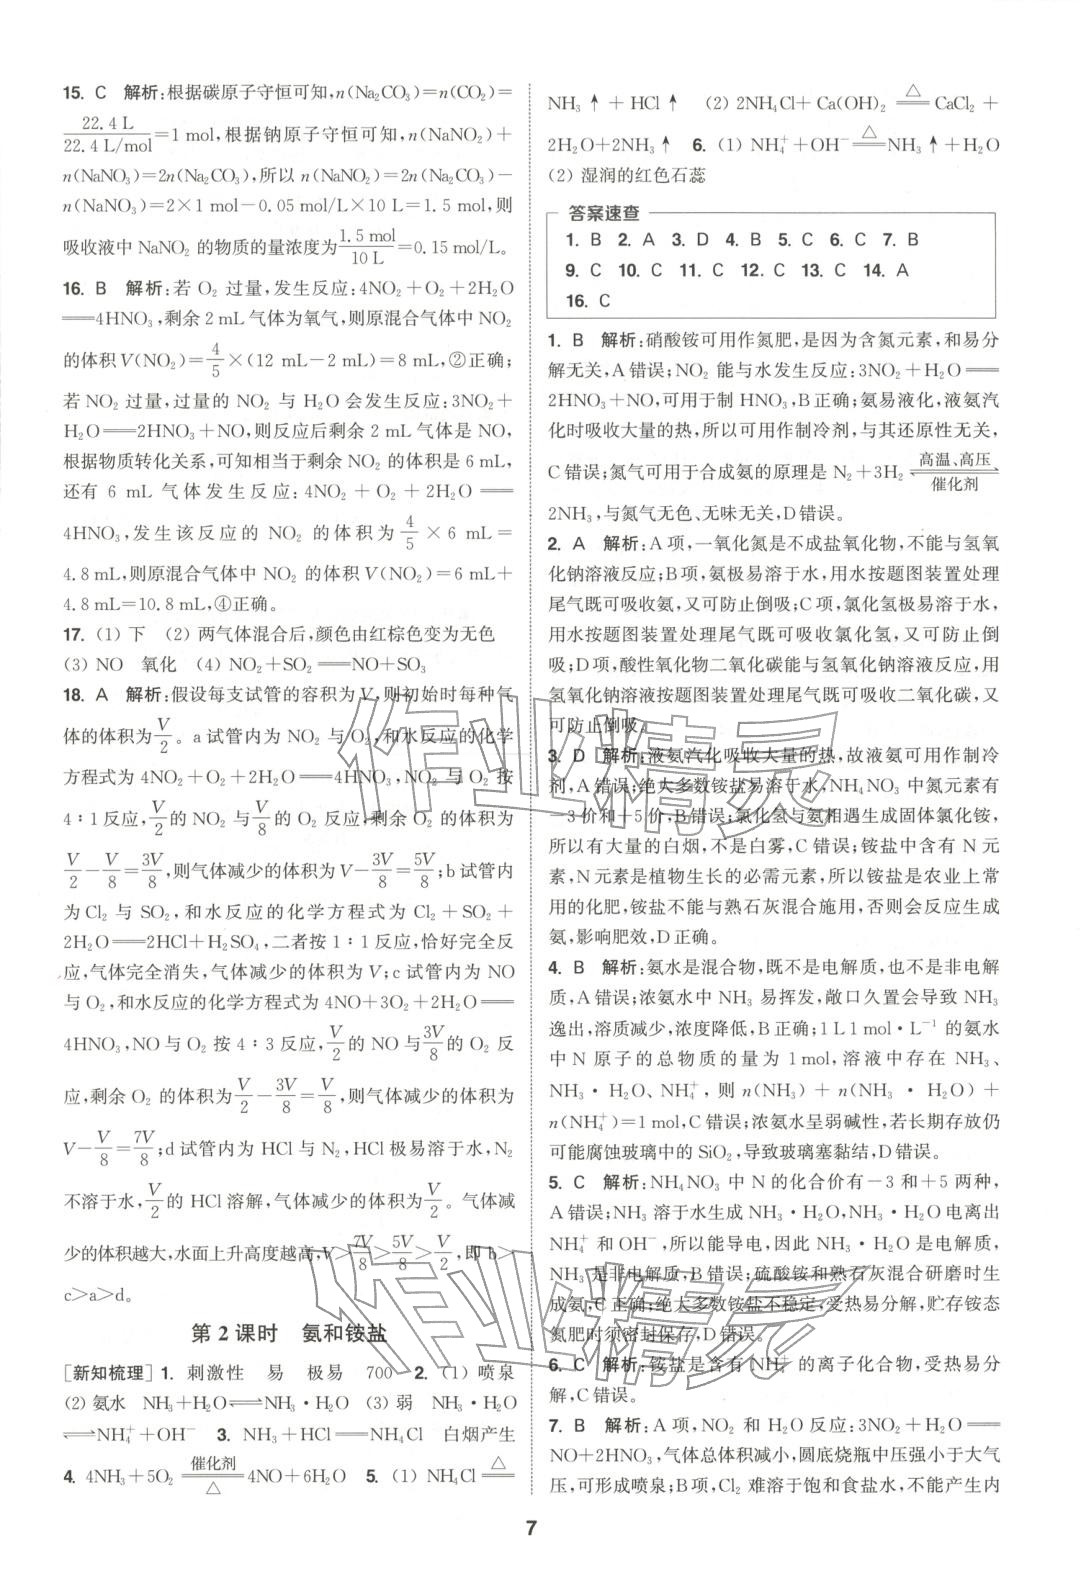 15. C 解析:根据碳原子守恒可知,n(Na₂CO₃)=n(CO₂)=
22.4 L/22.4 L/mol=1 mol,根据钠原子守恒可知,n(NaNO₂)+
n(NaNO₃)=2n(Na₂CO₃),所以 n(NaNO₂)=2n(Na₂CO₃)-
n(NaNO₃)=2×1 mol-0.05 mol/L×10 L=1.5 mol,则
吸收液中 NaNO₂ 的物质的量浓度为1.5 mol/10 L=0.15 mol/L。
16. B 解析:若 O₂ 过量,发生反应:4NO₂+O₂+2H₂O
══4HNO₃,剩余 2 mL 气体为氧气,则原混合气体中 NO₂
的体积V(NO₂)=4/5×(12 mL-2 mL)=8 mL,②正确;
若 NO₂ 过量,过量的 NO₂ 与 H₂O 会发生反应:3NO₂+
H₂O══2HNO₃+NO,则反应后剩余 2 mL 气体是 NO,
根据物质转化关系,可知相当于剩余 NO₂ 的体积是 6 mL,
还有 6 mL 气体发生反应:4NO₂+O₂+2H₂O══
4HNO₃,发生该反应的 NO₂ 的体积为4/5×6 mL=
4.8 mL,则原混合气体中 NO₂ 的体积V(NO₂)=6 mL+
4.8 mL=10.8 mL,④正确。
17. (1) 下 (2) 两气体混合后,颜色由红棕色变为无色
(3) NO 氧化 (4) NO₂+SO₂══NO+SO₃
18. A 解析:假设每支试管的容积为 V,则初始时每种气
体的体积为V/2。a 试管内为 NO₂ 与 O₂,和水反应的化学
方程式为 4NO₂+O₂+2H₂O══4HNO₃,NO₂ 与 O₂ 按
4∶1 反应,V/2的 NO₂ 与V/8的 O₂ 反应,剩余 O₂ 的体积为
V/2-V/8=3V/8,则气体减少的体积为V-3V/8=5V/8;b 试管内
为 Cl₂ 与 SO₂,和水反应的化学方程式为 Cl₂+SO₂+
2H₂O══2HCl+H₂SO₄,二者按 1∶1 反应,恰好完全反
应,气体完全消失,气体减少的体积为V;c 试管内为 NO
与 O₂,和水反应的化学方程式为 4NO+3O₂+2H₂O══
4HNO₃,NO 与 O₂ 按 4∶3 反应,V/2的 NO 与3V/8的 O₂ 反
应,剩余 O₂ 的体积为V/2-3V/8=V/8,则气体减少的体积为
V-V/8=7V/8;d 试管内为 HCl 与 N₂,HCl 极易溶于水,N₂
不溶于水,V/2的 HCl 溶解,气体减少的体积为V/2。气体减
少的体积越大,水面上升高度越高,V>7V/8>5V/8>V/2,即 b>
c>a>d。
第 2 课时 氨和铵盐
[新知梳理] 1. 刺激性 易 极易 700 2. (1) 喷泉
(2) 氨水 NH₃+H₂O⇌NH₃·H₂O (3) 弱 NH₃·H₂O
⇌NH₄⁺+OH⁻ 3. NH₃+HCl══NH₄Cl 白烟产生
4. 4NH₃+5O₂ ══(催化剂/△) 4NO+6H₂O 5. (1) NH₄Cl ══(△)
NH₃↑+HCl↑ (2) 2NH₄Cl+Ca(OH)₂ ══(△) CaCl₂+
2H₂O+2NH₃↑ 6. (1) NH₄⁺+OH⁻ ══(△) NH₃↑+H₂O
(2) 湿润的红色石蕊
答案速查
1. B 2. A 3. D 4. B 5. C 6. C 7. B
9. C 10. C 11. C 12. C 13. C 14. A
16. C
1. B 解析:硝酸铵可用作氮肥,是因为含氮元素,和易分
解无关,A 错误;NO₂ 能与水发生反应:3NO₂+H₂O══
2HNO₃+NO,可用于制 HNO₃,B 正确;氨易液化,液氨汽
化时吸收大量的热,所以可用作制冷剂,与其还原性无关,
C 错误;氮气可用于合成氨的原理是 N₂+3H₂ ⇌(高温、高压/催化剂)
2NH₃,与氮气无色、无味无关,D 错误。
2. A 解析:A 项,一氧化氮是不成盐氧化物,不能与氢氧
化钠溶液反应;B 项,氨极易溶于水,用水按题图装置处理
尾气既可吸收氨,又可防止倒吸;C 项,氯化氢极易溶于水,
用水按题图装置处理尾气既可吸收氯化氢,又可防止倒
吸;D 项,酸性氧化物二氧化碳能与氢氧化钠溶液反应,用
氢氧化钠溶液按题图装置处理尾气既可吸收二氧化碳,又
可防止倒吸。
3. D 解析:液氨汽化吸收大量的热,故液氨可用作制冷
剂,A 错误;绝大多数铵盐易溶于水,NH₄NO₃ 中氮元素有
-3 价和+5 价,B 错误;氯化氢与氨相遇生成固体氯化铵,
所以有大量的白烟,不是白雾,C 错误;铵盐中含有 N 元
素,N 元素是植物生长的必需元素,所以铵盐是农业上常
用的化肥,铵盐不能与熟石灰混合施用,否则会反应生成
氨,影响肥效,D 正确。
4. B 解析:氨水是混合物,既不是电解质,也不是非电解
质,A 错误;浓氨水中 NH₃ 易挥发,敞口久置会导致 NH₃
逸出,溶质减少,浓度降低,B 正确;1 L 1 mol·L⁻¹ 的氨水
中 N 原子的总物质的量为 1 mol,溶液中存在 NH₃、
NH₃·H₂O、NH₄⁺,则 n(NH₃)+n(NH₃·H₂O)+
n(NH₄⁺)=1 mol,C 错误;浓氨水呈弱碱性,若长期存放仍
可能腐蚀玻璃中的 SiO₂,导致玻璃塞黏结,D 错误。
5. C 解析:NH₄NO₃ 中 N 的化合价有-3 和+5 两种,
A 错误;NH₃ 溶于水生成 NH₃·H₂O,NH₃·H₂O 电离出
NH₄⁺ 和 OH⁻,所以能导电,因此 NH₃·H₂O 是电解质,
NH₃ 是非电解质,B 错误;硫酸铵和熟石灰混合研磨时生
成氨,C 正确;绝大多数铵盐不稳定,受热易分解,贮存铵态
氮肥时须密封保存,D 错误。
6. C 解析:铵盐是含有 NH₄⁺ 的离子化合物,受热易分
解,C 错误。
7. B 解析:A 项,NO₂ 和 H₂O 反应:3NO₂+H₂O══
NO+2HNO₃,气体总体积减小,圆底烧瓶中压强小于大气
压,可形成喷泉;B 项,Cl₂ 难溶于饱和食盐水,不能产生内
7
作业精灵
作业精灵